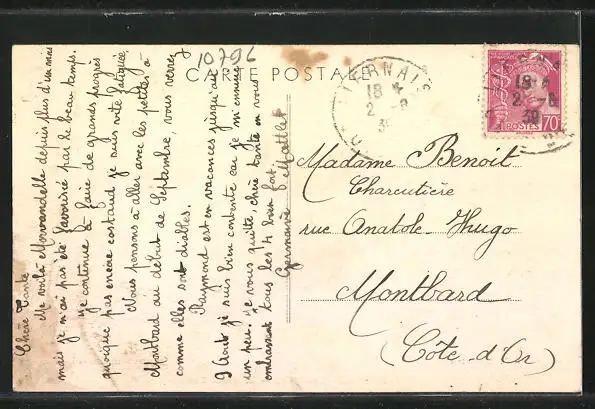 10796
CARTE POSTALE
LIERNAIS
18
2 - 8
39
18
2 - 8
39
POSTES 70c
Chère Tante
Me voilà Morvandelle depuis plus d'un mois
mais je n'ai pas été favorisée par le beau temps.
Je continue à faire de grands progrès
quoique pas encore costaud je suis vite fatiguée.
Nous pensons à aller avec les petites à
Montbard au début de Septembre, vous verrez
comme elles sont diables.
Raymond est en vacances jusqu'au
9 Août je suis bien contente car je m'ennuie
un peu. Je vous quitte, chère tante en vous
embrassant tous les 4 bien fort.
Germaine
Madame Benoit
Charcutière
rue Anatole-Hugo
Montbard
(Côte-d'Or)